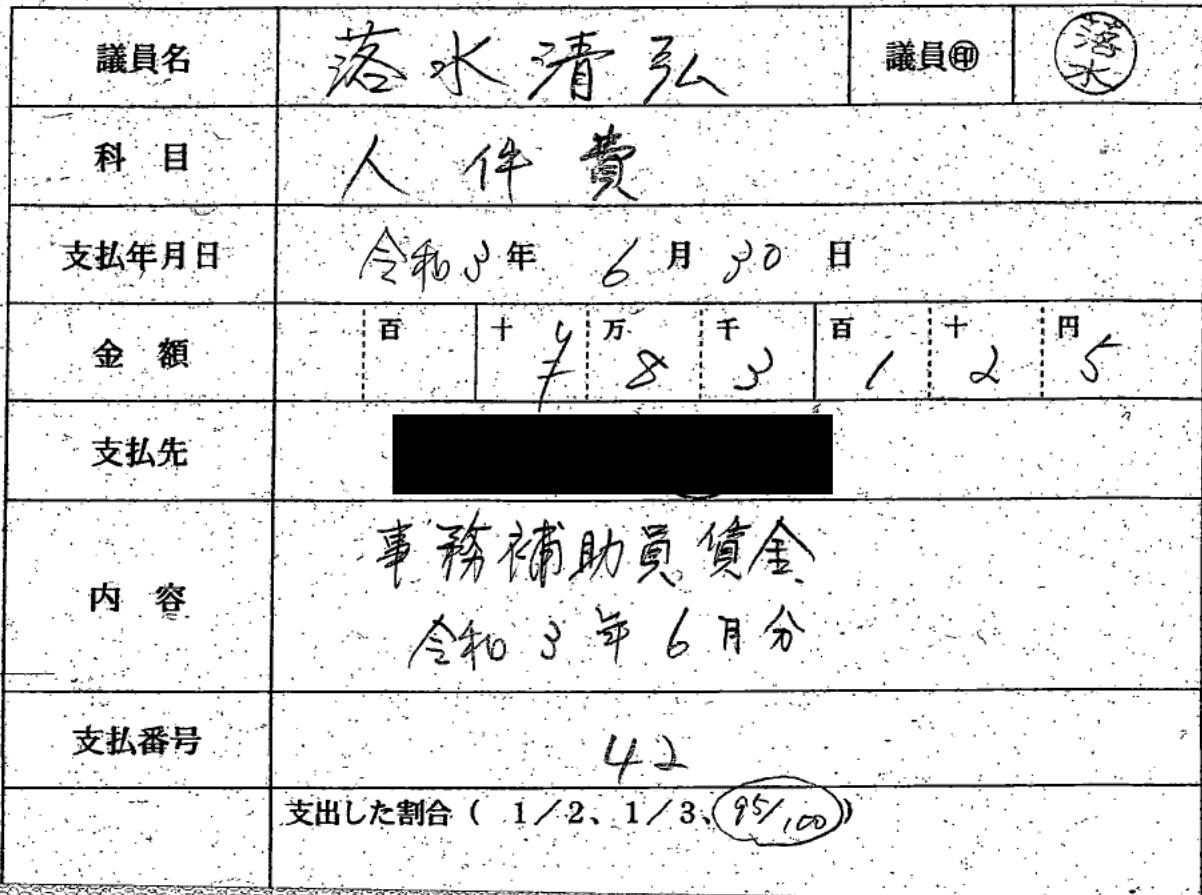 議員名 落水清弘 議員㊞ 落水
科 目 人件費
支払年月日 令和3年 6月30日
金 額 百 十 ¥ 万 8 千 3 百 1 十 2 円 5
支払先
内 容 事務補助員賃金
令和3年6月分
支払番号 42
支出した割合 ( 1/2、1/3、95/100)